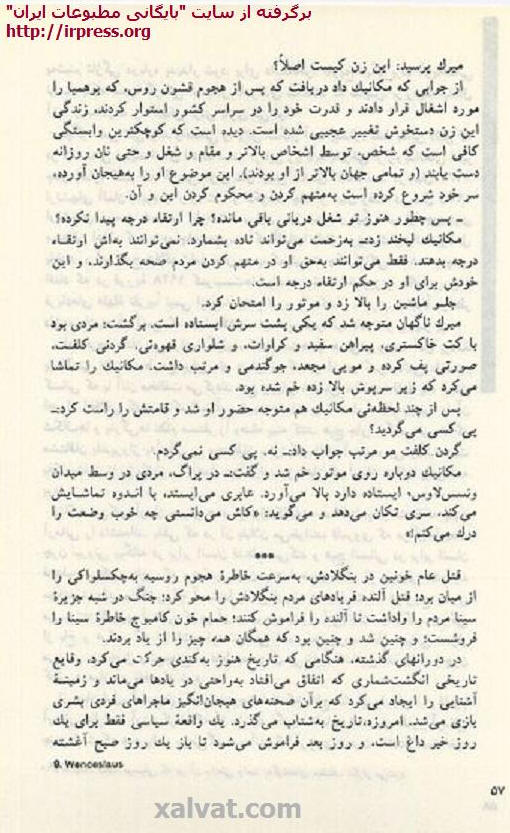 برگرفته از سایت "بایگانی مطبوعات ایران"
http://irpress.org
میرك پرسید: این زن کیست اصلاً؟
از جوابی که مکانیك داد دریافت که پس از هجوم قشون روس، که بوهمیا را
مورد اشغال قرار دادند و قدرت خود را در سراسر کشور استوار کردند، زندگی
این زن دستخوش تغییر عجیبی شده است. دیده است که کوچکترین وابستگی
کافی است که شخص، توسط اشخاص بالاتر و مقام و شغل و حتی نان روزانه
دست یابند (و تمامی جهان بالاتر از او بودند). این موضوع او را به‌هیجان آورده،
سر خود شروع کرده است به‌متهم کردن و محکوم کردن این و آن.
ـ پس چطور هنوز تو شغل دربانی باقی مانده؟ چرا ارتقاء درجه پیدا نکرده؟
مکانیك لبخند زدـ به‌زحمت می‌تواند تاده بشمارد. نمی‌توانند به‌اش ارتقاء
درجه بدهند. فقط می‌توانند به‌حق او در متهم کردن مردم صحه بگذارند، و این
خودش برای او در حکم ارتقاء درجه است.
جلو ماشین را بالا زد و موتور را امتحان کرد.
میرك ناگهان متوجه شد که یکی پشت سرش ایستاده است. برگشت؛ مردی بود
با کت خاکستری، پیراهن سفید و کراوات، و شلواری قهوه‌ئی. گردنی کلفت،
صورتی پف کرده و مویی مجعد، جوگندمی و مرتب داشت. مکانیك را تماشا
می‌کرد که زیر سرپوش بالا زده خم شده بود.
پس از چند لحظه‌ئی مکانیك هم متوجه حضور او شد و قامتش را راست کردـ
پی کسی می‌گردید؟
گردن کلفت مو مرتب جواب دادـ نه. پی کسی نمی‌گردم.
مکانیك دوباره روی موتور خم شد و گفت: در پراگ، مردی در وسط میدان
ونسس‌لاوس۹ ایستاده دارد بالا می‌آورد. عابری می‌ایستد، با اندوه تماشایش
می‌کند، سری تکان می‌دهد و می‌گوید: «کاش می‌دانستی چه خوب وضعت را
درك می‌کنم!»
***
قتل عام خونین در بنگلادش، به‌سرعت خاطرهٔ هجوم روسیه به‌چکسلواکی را
از میان برد؛ قتل آلنده فریادهای مردم بنگلادش را محو کرد؛ جنگ در شبه جزیرهٔ
سینا مردم را واداشت تا آلنده را فراموش کنند؛ حمام خون کامبوج خاطرهٔ سینا را
فروشست؛ و چنین شد و چنین بود که همگان همه چیز را از یاد بردند.
در دورانهای گذشته، هنگامی که تاریخ هنوز به‌کندی حرکت می‌کرد، وقایع
تاریخی انگشت‌شماری که اتفاق می‌افتاد به‌راحتی در یادها می‌ماند و زمینهٔ
آشنایی را ایجاد می‌کرد که برآن صحنه‌های هیجان‌انگیز ماجراهای فردی بشری
بازی می‌شد. امروزه، تاریخ به‌شتاب می‌گذرد. یك واقعهٔ سیاسی فقط برای یك
روز خبر داغ است، و روز بعد فراموش می‌شود تا باز یك روز صبح آغشته
9. Wenceslaus
۵۷
xalvat.com